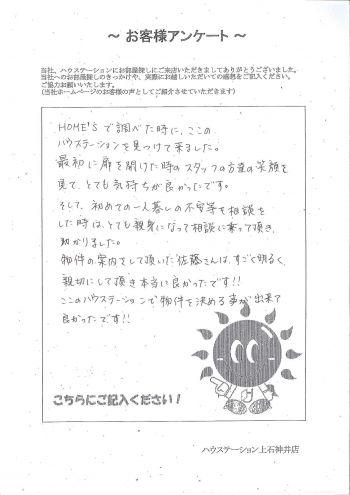 ～ お客様アンケート ～
当社、ハウステーションにお部屋探しにご来店いただきましてありがとうございました。
当社へのお部屋探しのきっかけや、実際にお越しいただいての感想をご記入ください。
ご協力お願いいたします。
(当社ホームページのお客様の声としてご紹介させていただきます)
HOME'Sで調べた時に、この
ハウステーションを見つけて来ました。
最初に扉を開けた時のスタッフの方達の笑顔を
見て、とても気持ちが良かったです。
そして、初めての一人暮しの不安等を相談を
した時は、とても親身になって相談に乗って頂き、
助かりました。
物件の案内をして頂いた佐藤さんは、すごく明るく、
親切にして頂き本当に良かったです!!
このハウステーションで物件を決める事が出来て
良かったです!!
こちらにご記入ください!
ハウステーション上石神井店